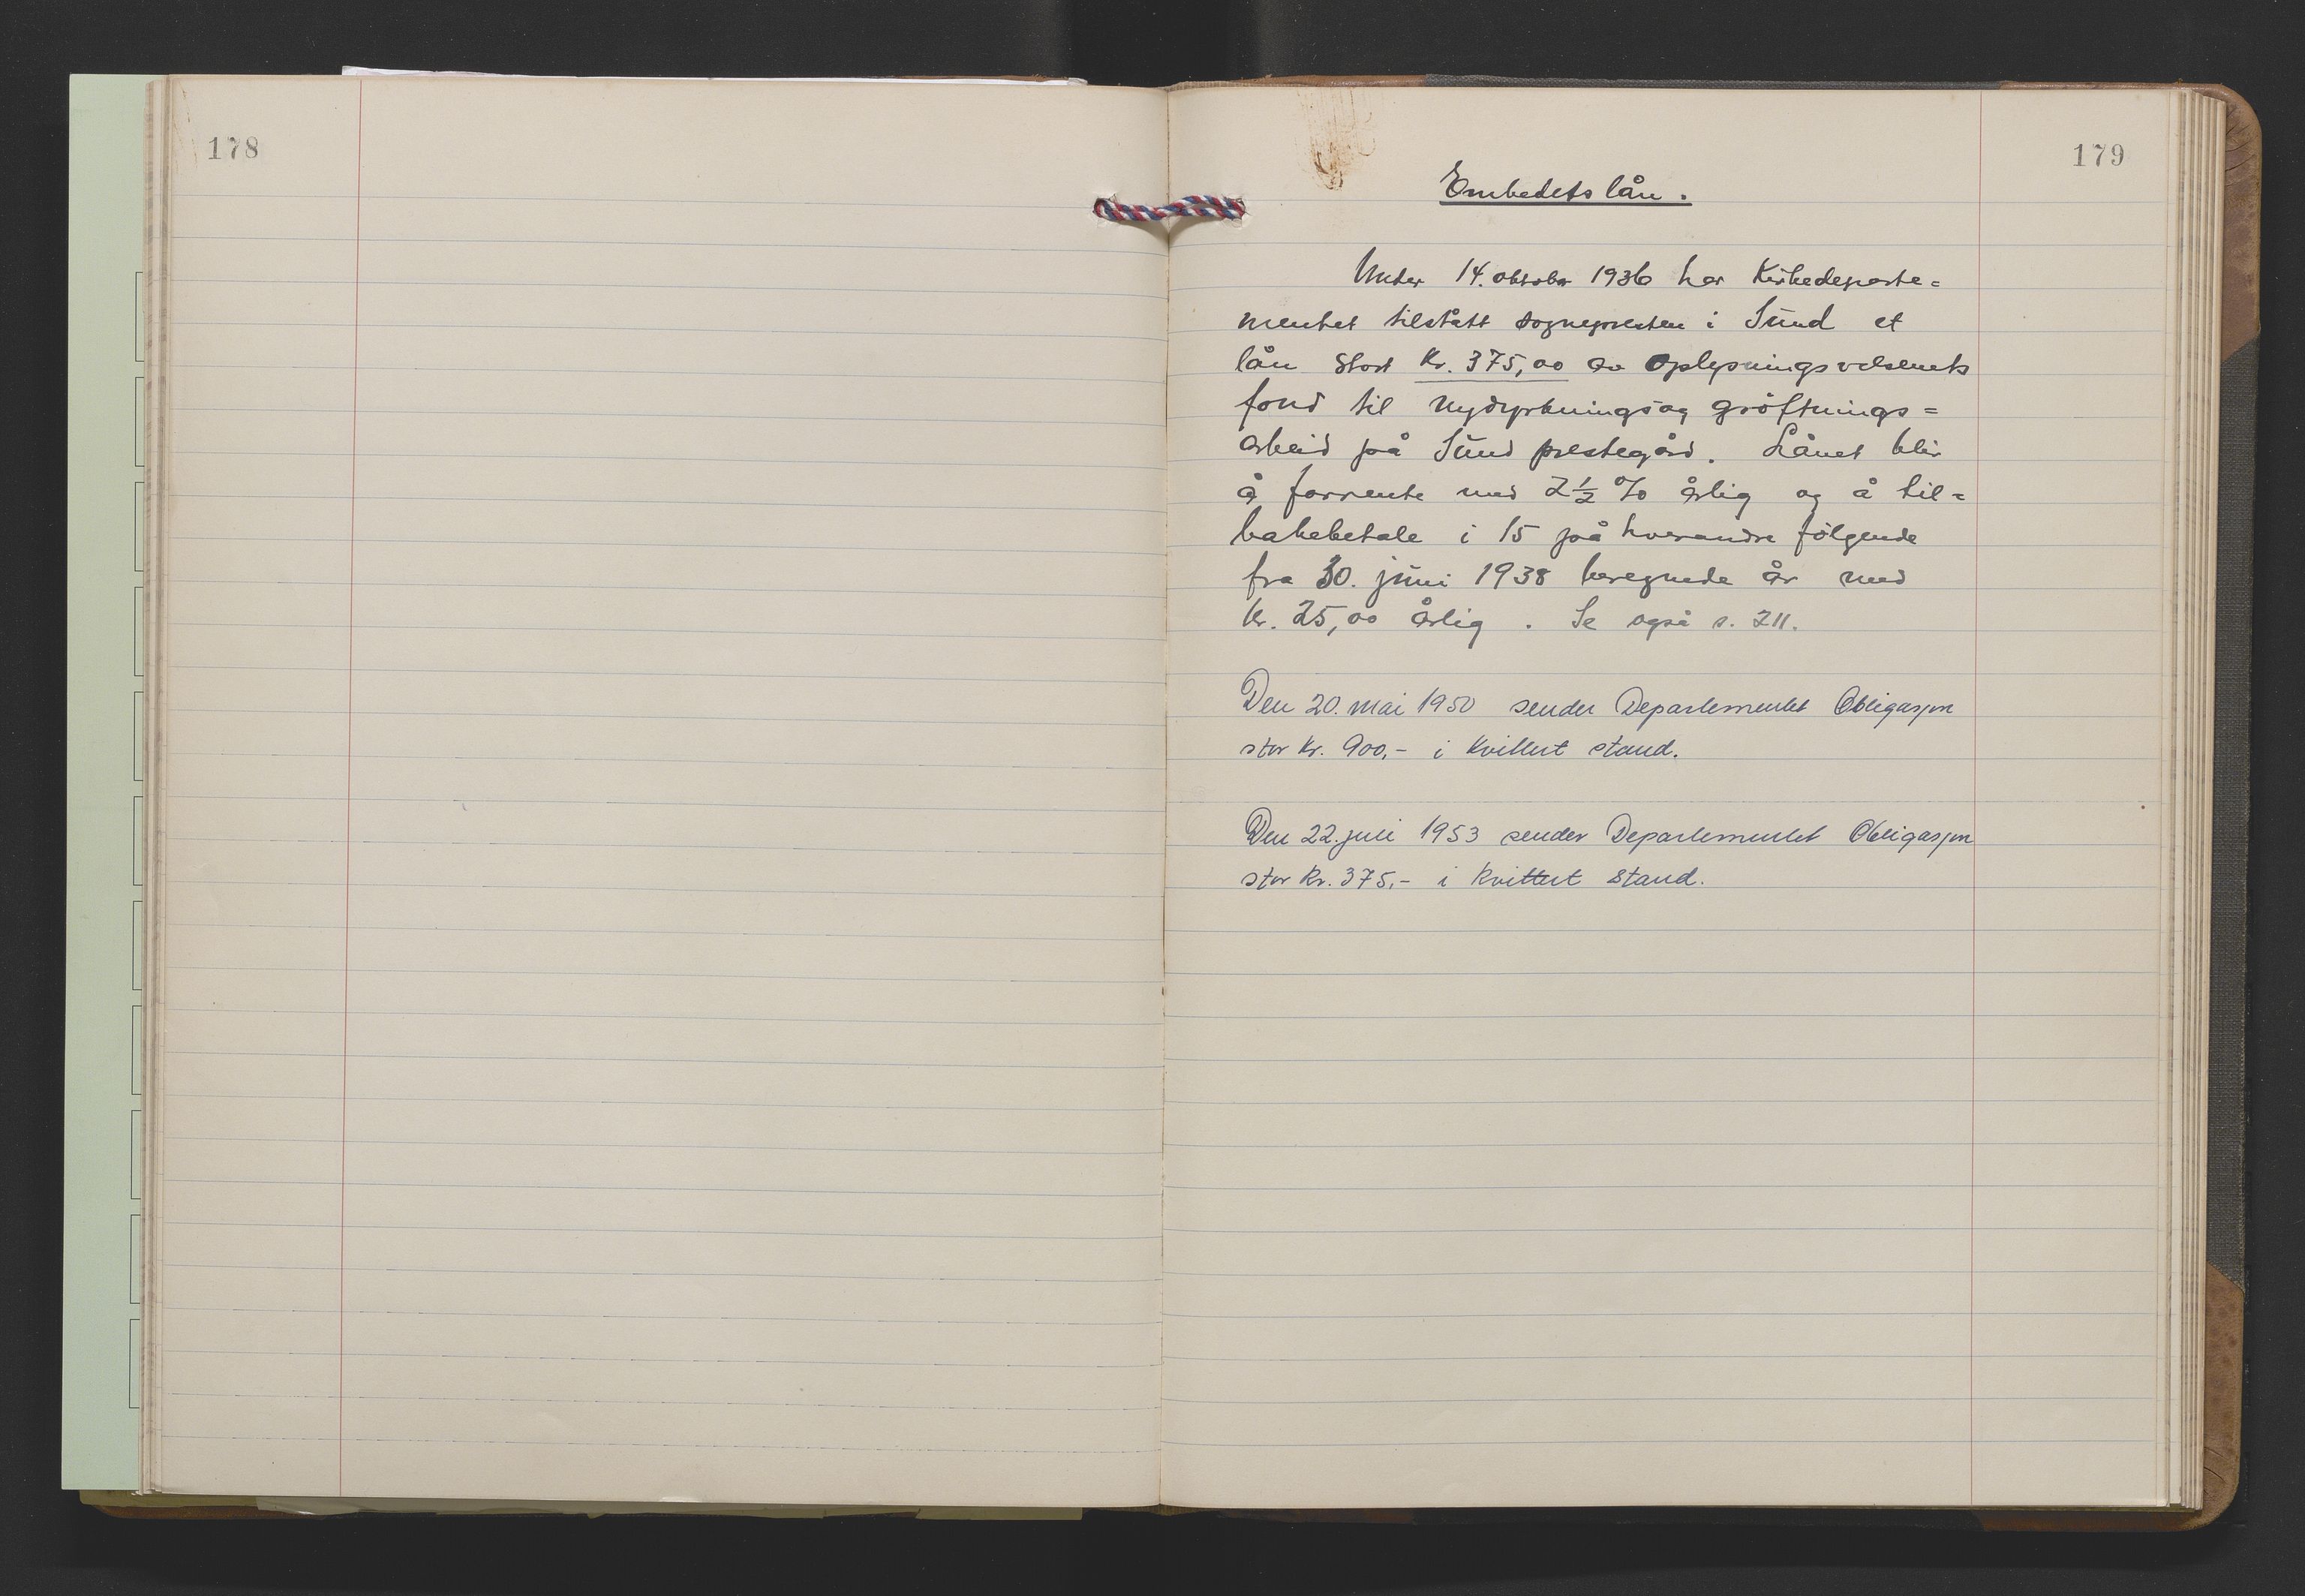 178
179
Embedets lån.
Under 14. oktober 1936 har Kirkedeparte=
mentet tilstått sognepresten i Sund et
lån stort Kr. 375,00 av Oplysningsvesenets
fond til nydyrknings og grøftnings=
arbeid på Sund prestegård. Lånet blir
å forrente med 2½ % årlig og å til=
bakebetale i 15 på hverandre følgende
fra 30. juni 1938 beregnede år med
kr. 25,00 årlig. Se også s. 211.
Den 20. mai 1950 sender Departementet Obligasjon
stor kr. 900,- i kvittert stand.
Den 22. juli 1953 sender Departementet Obligasjon
stor kr. 375,- i kvittert stand.